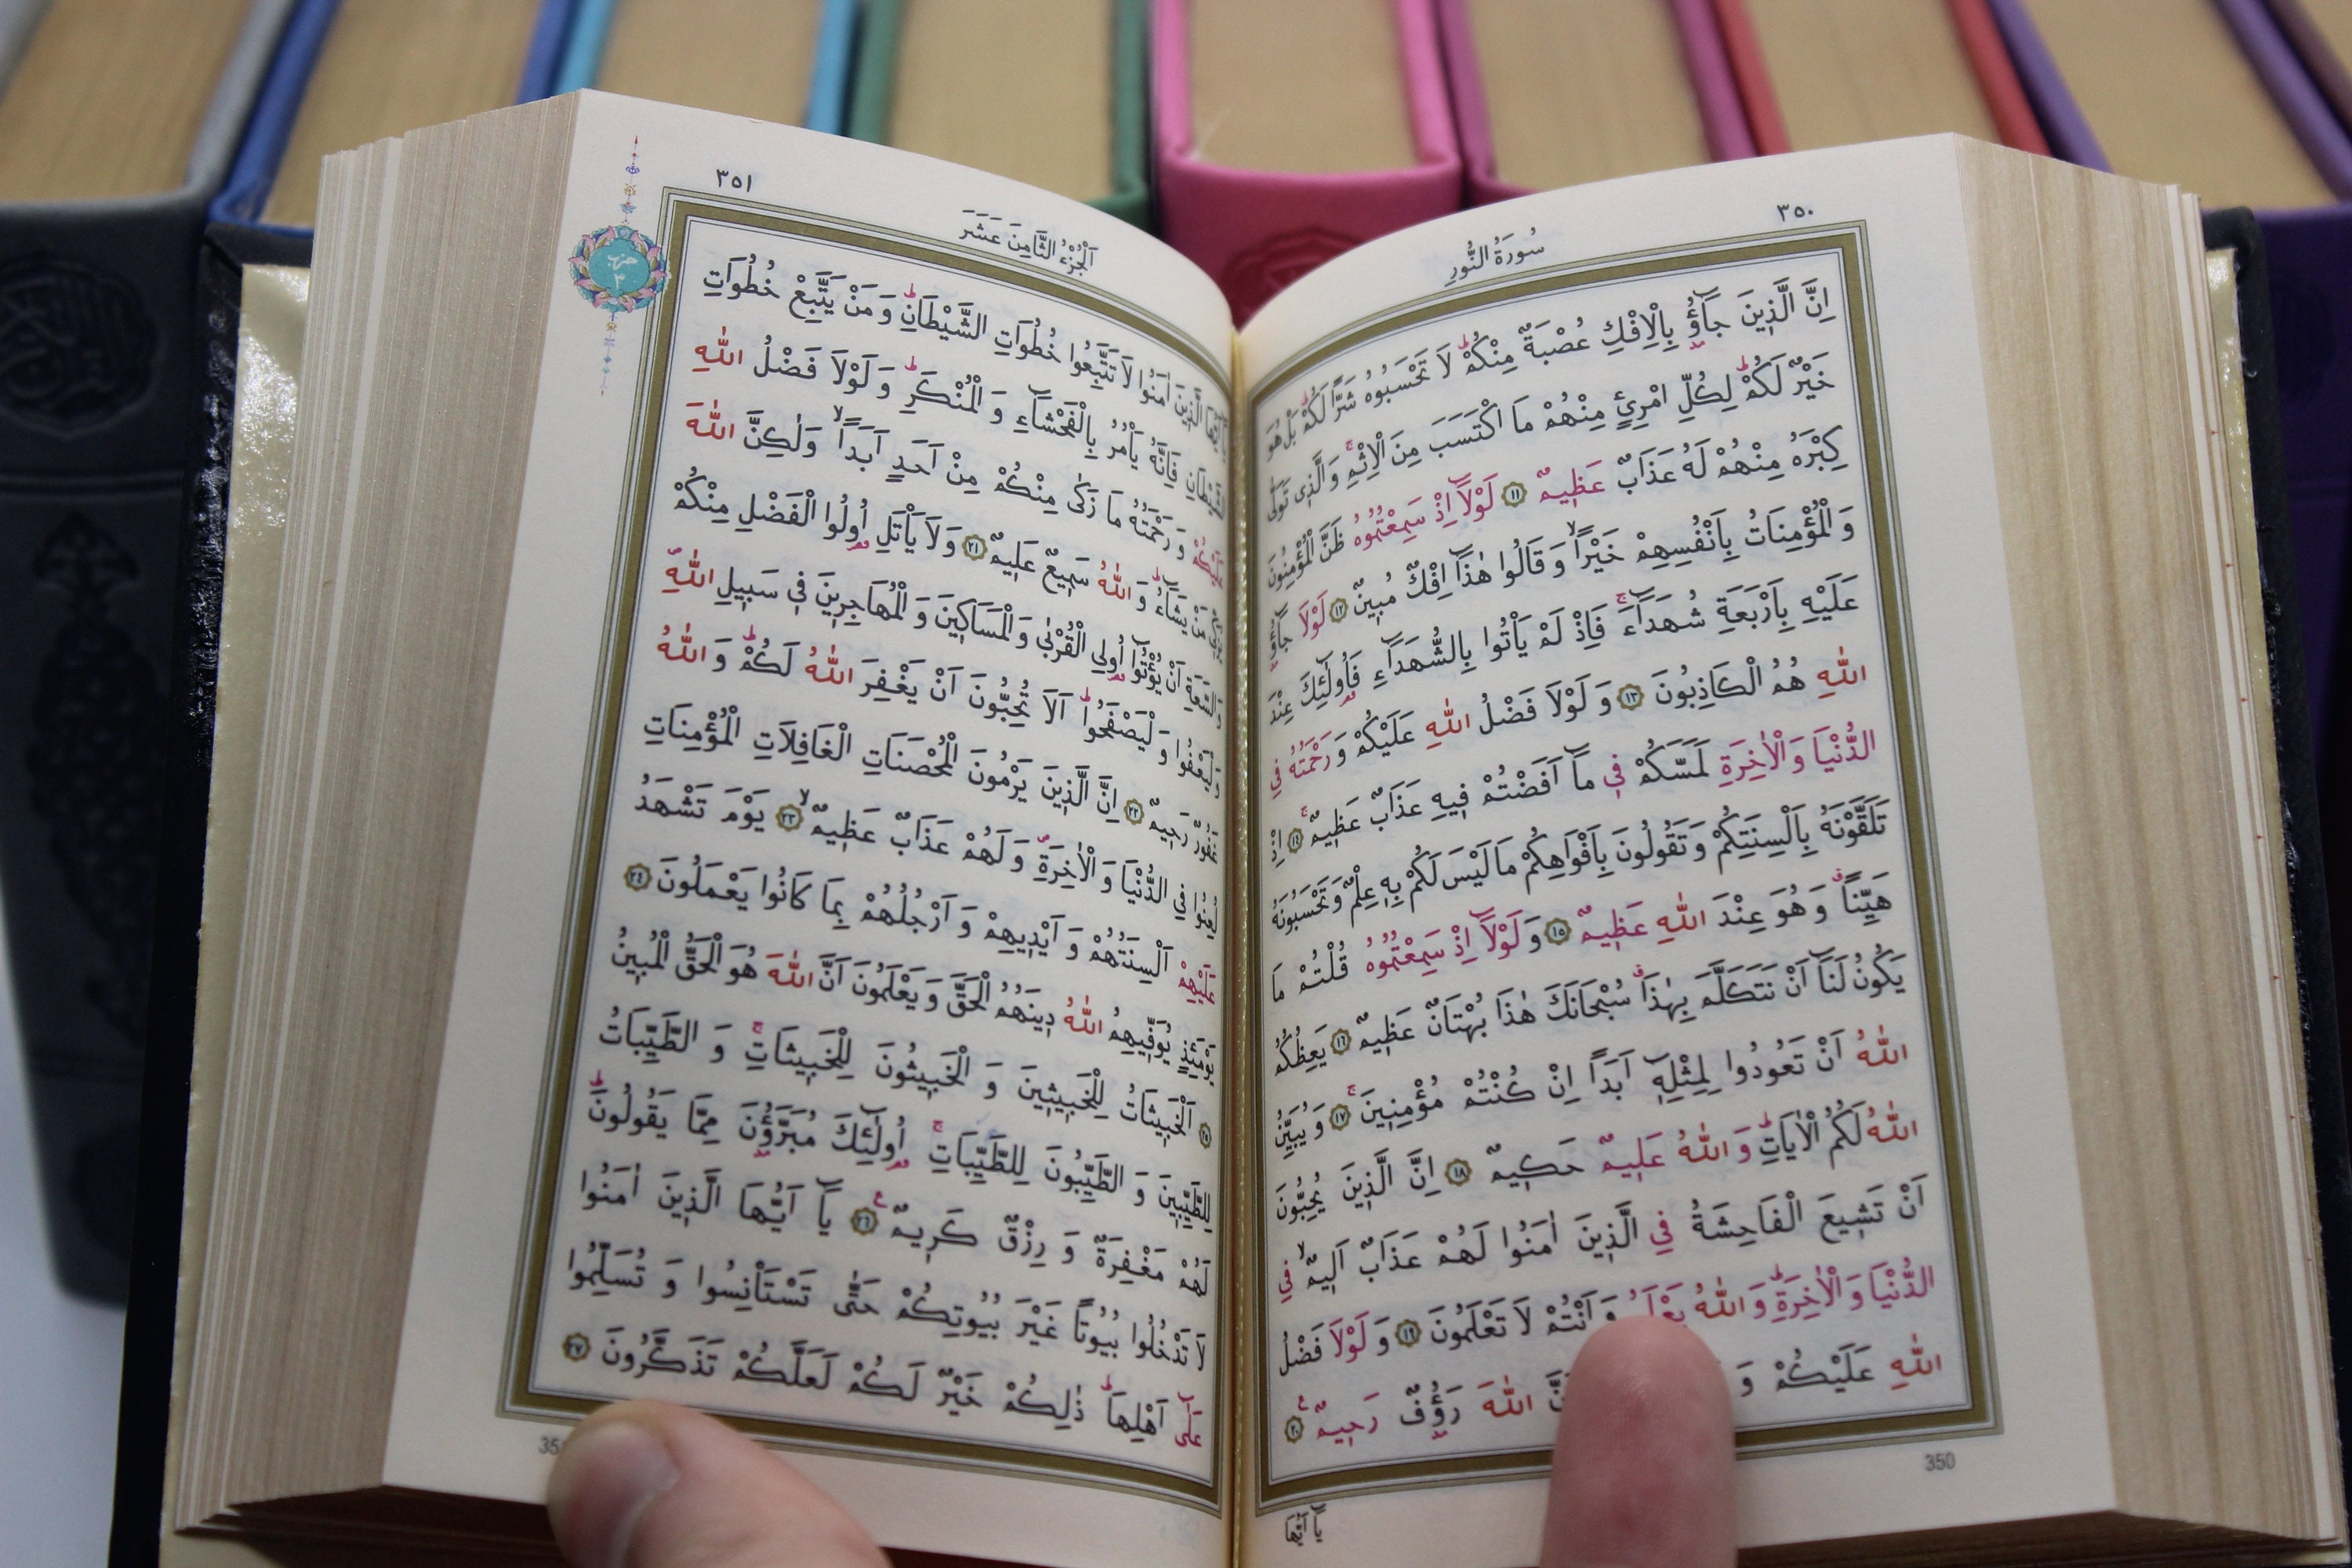 ٣٥٠
سُورَةُ النُّورِ
اِنَّ الَّذ۪ينَ جَٓاؤُ۫ بِالْاِفْكِ عُصْبَةٌ مِنْكُمْۜ لَا تَحْسَبُوهُ شَرًّا لَكُمْۜ بَلْ هُوَ
خَيْرٌ لَكُمْۜ لِكُلِّ امْرِئٍ مِنْهُمْ مَا اكْتَسَبَ مِنَ الْاِثْمِۚ وَالَّذ۪ي تَوَلّٰى
كِبْرَهُ مِنْهُمْ لَهُ عَذَابٌ عَظ۪يمٌ ﴿١١﴾ لَوْلَٓا اِذْ سَمِعْتُمُوهُ ظَنَّ الْمُؤْمِنُونَ
وَالْمُؤْمِنَاتُ بِاَنْفُسِهِمْ خَيْرًاۙ وَقَالُوا هٰذَٓا اِفْكٌ مُب۪ينٌ ﴿١٢﴾ لَوْلَا جَٓاؤُ۫
عَلَيْهِ بِاَرْبَعَةِ شُهَدَٓاءَۚ فَاِذْ لَمْ يَأْتُوا بِالشُّهَدَٓاءِ فَاُو۬لٰٓئِكَ عِنْدَ
اللّٰهِ هُمُ الْكَاذِبُونَ ﴿١٣﴾ وَلَوْلَا فَضْلُ اللّٰهِ عَلَيْكُمْ وَرَحْمَتُهُ فِي
الدُّنْيَا وَالْاٰخِرَةِ لَمَسَّكُمْ ف۪ي مَٓا اَفَضْتُمْ ف۪يهِ عَذَابٌ عَظ۪يمٌۚ ﴿١٤﴾ اِذْ
تَلَقَّوْنَهُ بِاَلْسِنَتِكُمْ وَتَقُولُونَ بِاَفْوَاهِكُمْ مَا لَيْسَ لَكُمْ بِه۪ عِلْمٌ وَتَحْسَبُونَهُ
هَيِّنًاۗ وَهُوَ عِنْدَ اللّٰهِ عَظ۪يمٌ ﴿١٥﴾ وَلَوْلَٓا اِذْ سَمِعْتُمُوهُ قُلْتُمْ مَا
يَكُونُ لَنَٓا اَنْ نَتَكَلَّمَ بِهٰذَاۗ سُبْحَانَكَ هٰذَا بُهْتَانٌ عَظ۪يمٌ ﴿١٦﴾ يَعِظُكُمُ
اللّٰهُ اَنْ تَعُودُوا لِمِثْلِه۪ٓ اَبَدًا اِنْ كُنْتُمْ مُؤْمِن۪ينَۚ ﴿١٧﴾ وَيُبَيِّنُ
اللّٰهُ لَكُمُ الْاٰيَاتِۜ وَاللّٰهُ عَل۪يمٌ حَك۪يمٌ ﴿١٨﴾ اِنَّ الَّذ۪ينَ يُحِبُّونَ
اَنْ تَش۪يعَ الْفَاحِشَةُ فِي الَّذ۪ينَ اٰمَنُوا لَهُمْ عَذَابٌ اَل۪يمٌۙ فِي
الدُّنْيَا وَالْاٰخِرَةِۜ وَاللّٰهُ وَاَنْتُمْ لَا تَعْلَمُونَ ﴿١٩﴾ وَلَوْلَا فَضْلُ
اللّٰهِ عَلَيْكُمْ اللّٰهَ رَؤُ۫فٌ رَح۪يمٌ۟ ﴿٢٠﴾
350
يَٓا اَيُّهَا
٣٥١
اَلْجُزْءُ الثَّامِنَ عَشَرَ
حزب
٣
الَّذ۪ينَ اٰمَنُوا لَا تَتَّبِعُوا خُطُوَاتِ الشَّيْطَانِۜ وَمَنْ يَتَّبِعْ خُطُوَاتِ
فَاِنَّهُ يَأْمُرُ بِالْفَحْشَٓاءِ وَالْمُنْكَرِۜ وَلَوْلَا فَضْلُ اللّٰهِ
وَرَحْمَتُهُ مَا زَكٰى مِنْكُمْ مِنْ اَحَدٍ اَبَدًاۙ وَلٰكِنَّ اللّٰهَ
مَنْ يَشَٓاءُۜ وَاللّٰهُ سَم۪يعٌ عَل۪يمٌ ﴿٢١﴾ وَلَا يَأْتَلِ اُو۬لُوا الْفَضْلِ مِنْكُمْ
وَالسَّعَةِ اَنْ يُؤْتُٓوا اُو۬لِي الْقُرْبٰى وَالْمَسَاك۪ينَ وَالْمُهَاجِر۪ينَ ف۪ي سَب۪يلِ اللّٰهِۖ
وَلْيَعْفُوا وَلْيَصْفَحُواۜ اَلَا تُحِبُّونَ اَنْ يَغْفِرَ اللّٰهُ لَكُمْۜ وَاللّٰهُ
غَفُورٌ رَح۪يمٌ ﴿٢٢﴾ اِنَّ الَّذ۪ينَ يَرْمُونَ الْمُحْصَنَاتِ الْغَافِلَاتِ الْمُؤْمِنَاتِ
لُعِنُوا فِي الدُّنْيَا وَالْاٰخِرَةِۖ وَلَهُمْ عَذَابٌ عَظ۪يمٌۙ ﴿٢٣﴾ يَوْمَ تَشْهَدُ
عَلَيْهِمْ اَلْسِنَتُهُمْ وَاَيْد۪يهِمْ وَاَرْجُلُهُمْ بِمَا كَانُوا يَعْمَلُونَ ﴿٢٤﴾
يَوْمَئِذٍ يُوَفّ۪يهِمُ اللّٰهُ د۪ينَهُمُ الْحَقَّ وَيَعْلَمُونَ اَنَّ اللّٰهَ هُوَ الْحَقُّ الْمُب۪ينُ
﴿٢٥﴾ اَلْخَب۪يثَاتُ لِلْخَب۪يث۪ينَ وَالْخَب۪يثُونَ لِلْخَب۪يثَاتِۚ وَالطَّيِّبَاتُ
لِلطَّيِّب۪ينَ وَالطَّيِّبُونَ لِلطَّيِّبَاتِۚ اُو۬لٰٓئِكَ مُبَرَّؤُ۫نَ مِمَّا يَقُولُونَۜ
لَهُمْ مَغْفِرَةٌ وَرِزْقٌ كَر۪يمٌ۟ ﴿٢٦﴾ يَٓا اَيُّهَا الَّذ۪ينَ اٰمَنُوا
لَا تَدْخُلُوا بُيُوتًا غَيْرَ بُيُوتِكُمْ حَتّٰى تَسْتَأْنِسُوا وَتُسَلِّمُوا
عَلٰٓى اَهْلِهَاۜ ذٰلِكُمْ خَيْرٌ لَكُمْ لَعَلَّكُمْ تَذَكَّرُونَ ﴿٢٧﴾